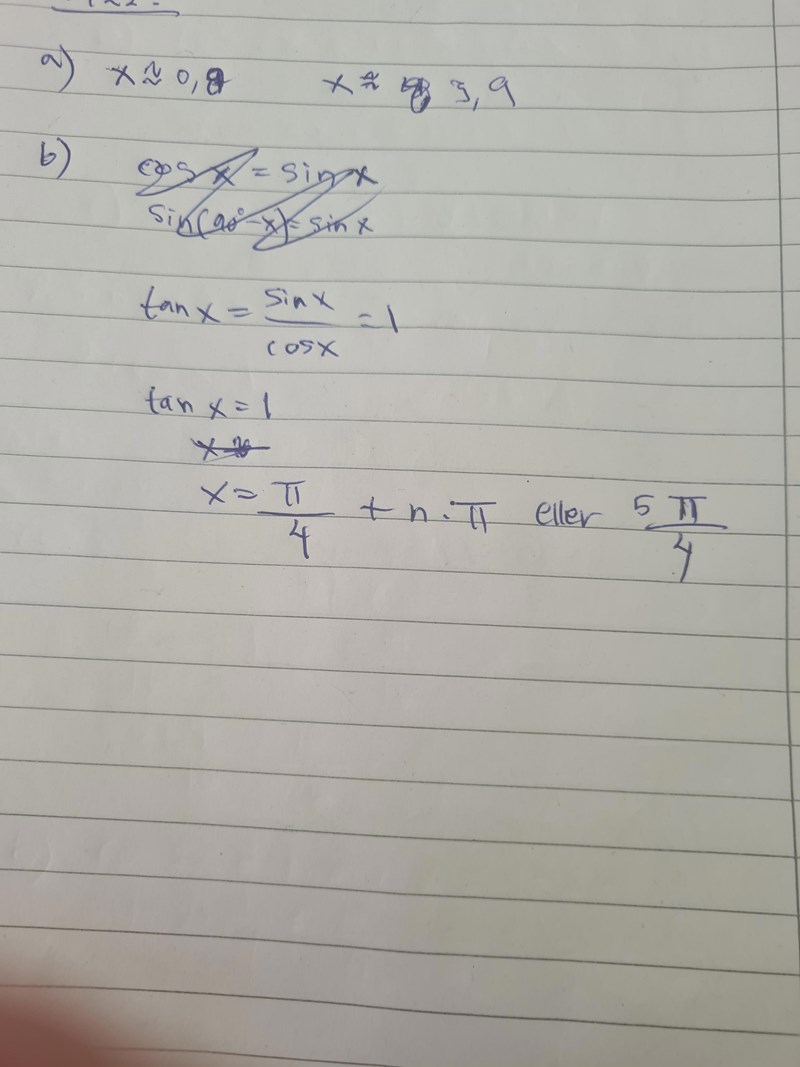 a) x ≈ 0,8 x ≈ 3,9
b) cos x = sin x
sin(90° - x) = sin x
tan x = sin x / cos x = 1
tan x = 1
x ≈
x = π/4 + n · π eller 5π/4